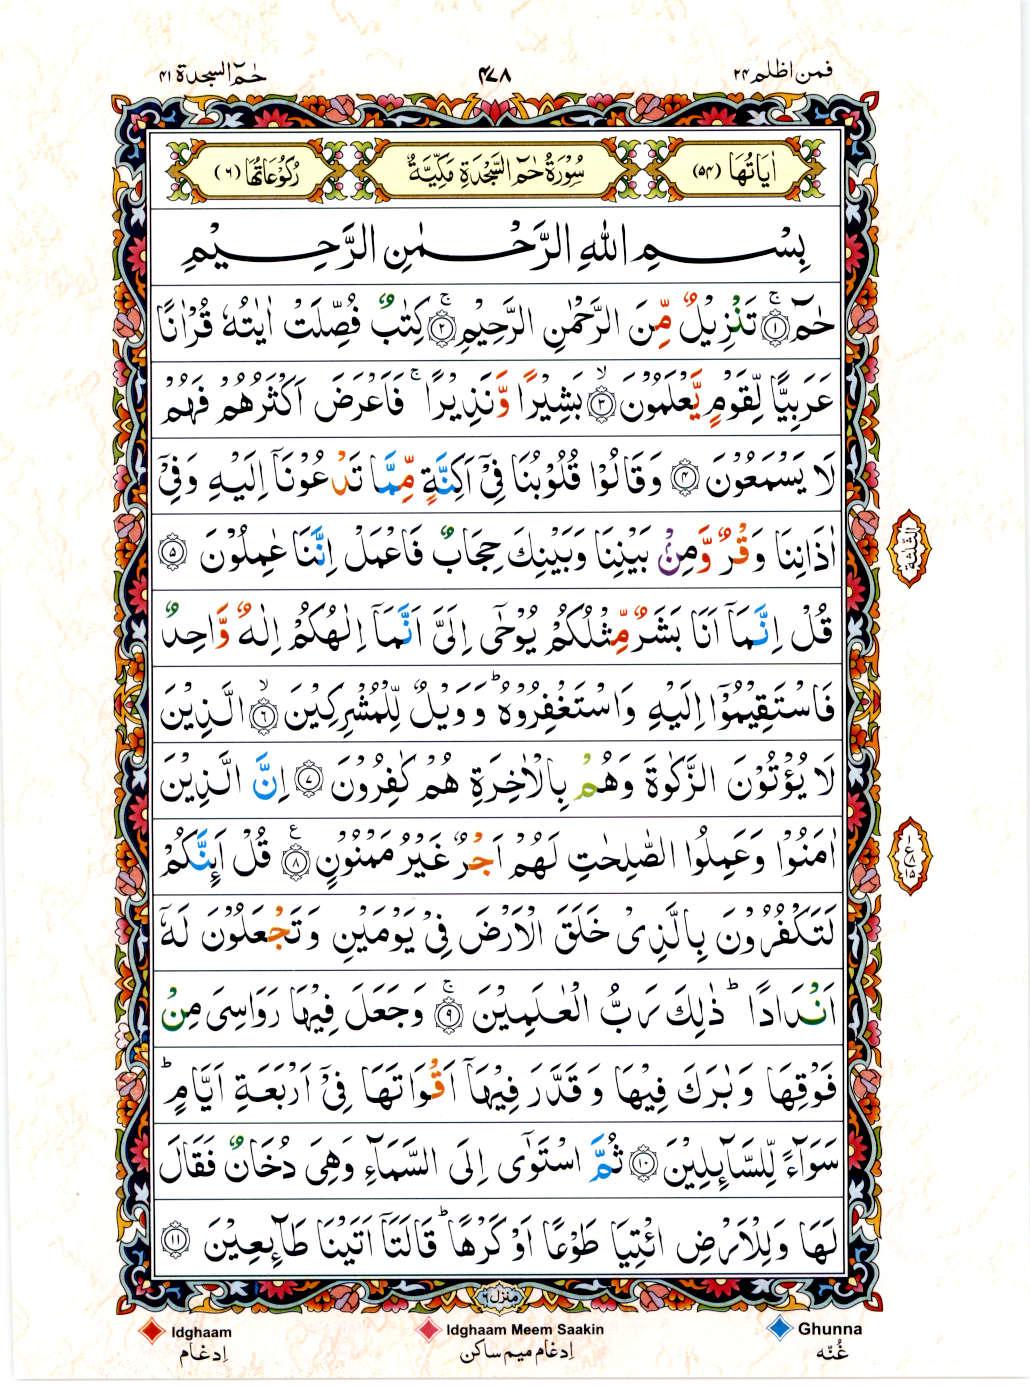 فمن اظلم ۲۴
۴۷۸
حٰمٓ السجدة ۴۱
اٰيَاتُهَا (۵۴)
سُوْرَةُ حٰمٓ السَّجْدَةِ مَكِّيَّةٌ
رُكُوْعَاتُهَا (۶)
بِسْمِ اللهِ الرَّحْمٰنِ الرَّحِيْمِ
حٰمٓ ۚ ﴿۱﴾ تَنْزِيْلٌ مِّنَ الرَّحْمٰنِ الرَّحِيْمِ ۚ ﴿۲﴾ كِتٰبٌ فُصِّلَتْ اٰيٰتُهٗ قُرْاٰنًا
عَرَبِيًّا لِّقَوْمٍ يَّعْلَمُوْنَ ۙ ﴿۳﴾ بَشِيْرًا وَّنَذِيْرًا ۚ فَاَعْرَضَ اَكْثَرُهُمْ فَهُمْ
لَا يَسْمَعُوْنَ ﴿۴﴾ وَقَالُوْا قُلُوْبُنَا فِيْٓ اَكِنَّةٍ مِّمَّا تَدْعُوْنَآ اِلَيْهِ وَفِيْٓ
اٰذَانِنَا وَقْرٌ وَّمِنْۢ بَيْنِنَا وَبَيْنِكَ حِجَابٌ فَاعْمَلْ اِنَّنَا عٰمِلُوْنَ ﴿۵﴾
الثلثة
قُلْ اِنَّمَآ اَنَا بَشَرٌ مِّثْلُكُمْ يُوْحٰٓى اِلَيَّ اَنَّمَآ اِلٰهُكُمْ اِلٰهٌ وَّاحِدٌ
فَاسْتَقِيْمُوْٓا اِلَيْهِ وَاسْتَغْفِرُوْهُ ؕ وَوَيْلٌ لِّلْمُشْرِكِيْنَ ۙ ﴿۶﴾ الَّذِيْنَ
لَا يُؤْتُوْنَ الزَّكٰوةَ وَهُمْ بِالْاٰخِرَةِ هُمْ كٰفِرُوْنَ ﴿۷﴾ اِنَّ الَّذِيْنَ
اٰمَنُوْا وَعَمِلُوا الصّٰلِحٰتِ لَهُمْ اَجْرٌ غَيْرُ مَمْنُوْنٍ ﴿۸﴾ ع قُلْ اَئِنَّكُمْ
۱
ع ۸
۱۵
لَتَكْفُرُوْنَ بِالَّذِيْ خَلَقَ الْاَرْضَ فِيْ يَوْمَيْنِ وَتَجْعَلُوْنَ لَهٗٓ
اَنْدَادًا ؕ ذٰلِكَ رَبُّ الْعٰلَمِيْنَ ۚ ﴿۹﴾ وَجَعَلَ فِيْهَا رَوَاسِيَ مِنْ
فَوْقِهَا وَبٰرَكَ فِيْهَا وَقَدَّرَ فِيْهَآ اَقْوَاتَهَا فِيْٓ اَرْبَعَةِ اَيَّامٍ ؕ
سَوَآءً لِّلسَّآئِلِيْنَ ﴿۱۰﴾ ثُمَّ اسْتَوٰٓى اِلَى السَّمَآءِ وَهِيَ دُخَانٌ فَقَالَ
لَهَا وَلِلْاَرْضِ ائْتِيَا طَوْعًا اَوْ كَرْهًا ؕ قَالَتَآ اَتَيْنَا طَآئِعِيْنَ ﴿۱۱﴾
منزل ۶
Idghaam
Idghaam Meem Saakin
Ghunna
اِدغَام
اِدغَام میم ساکن
غُنّه